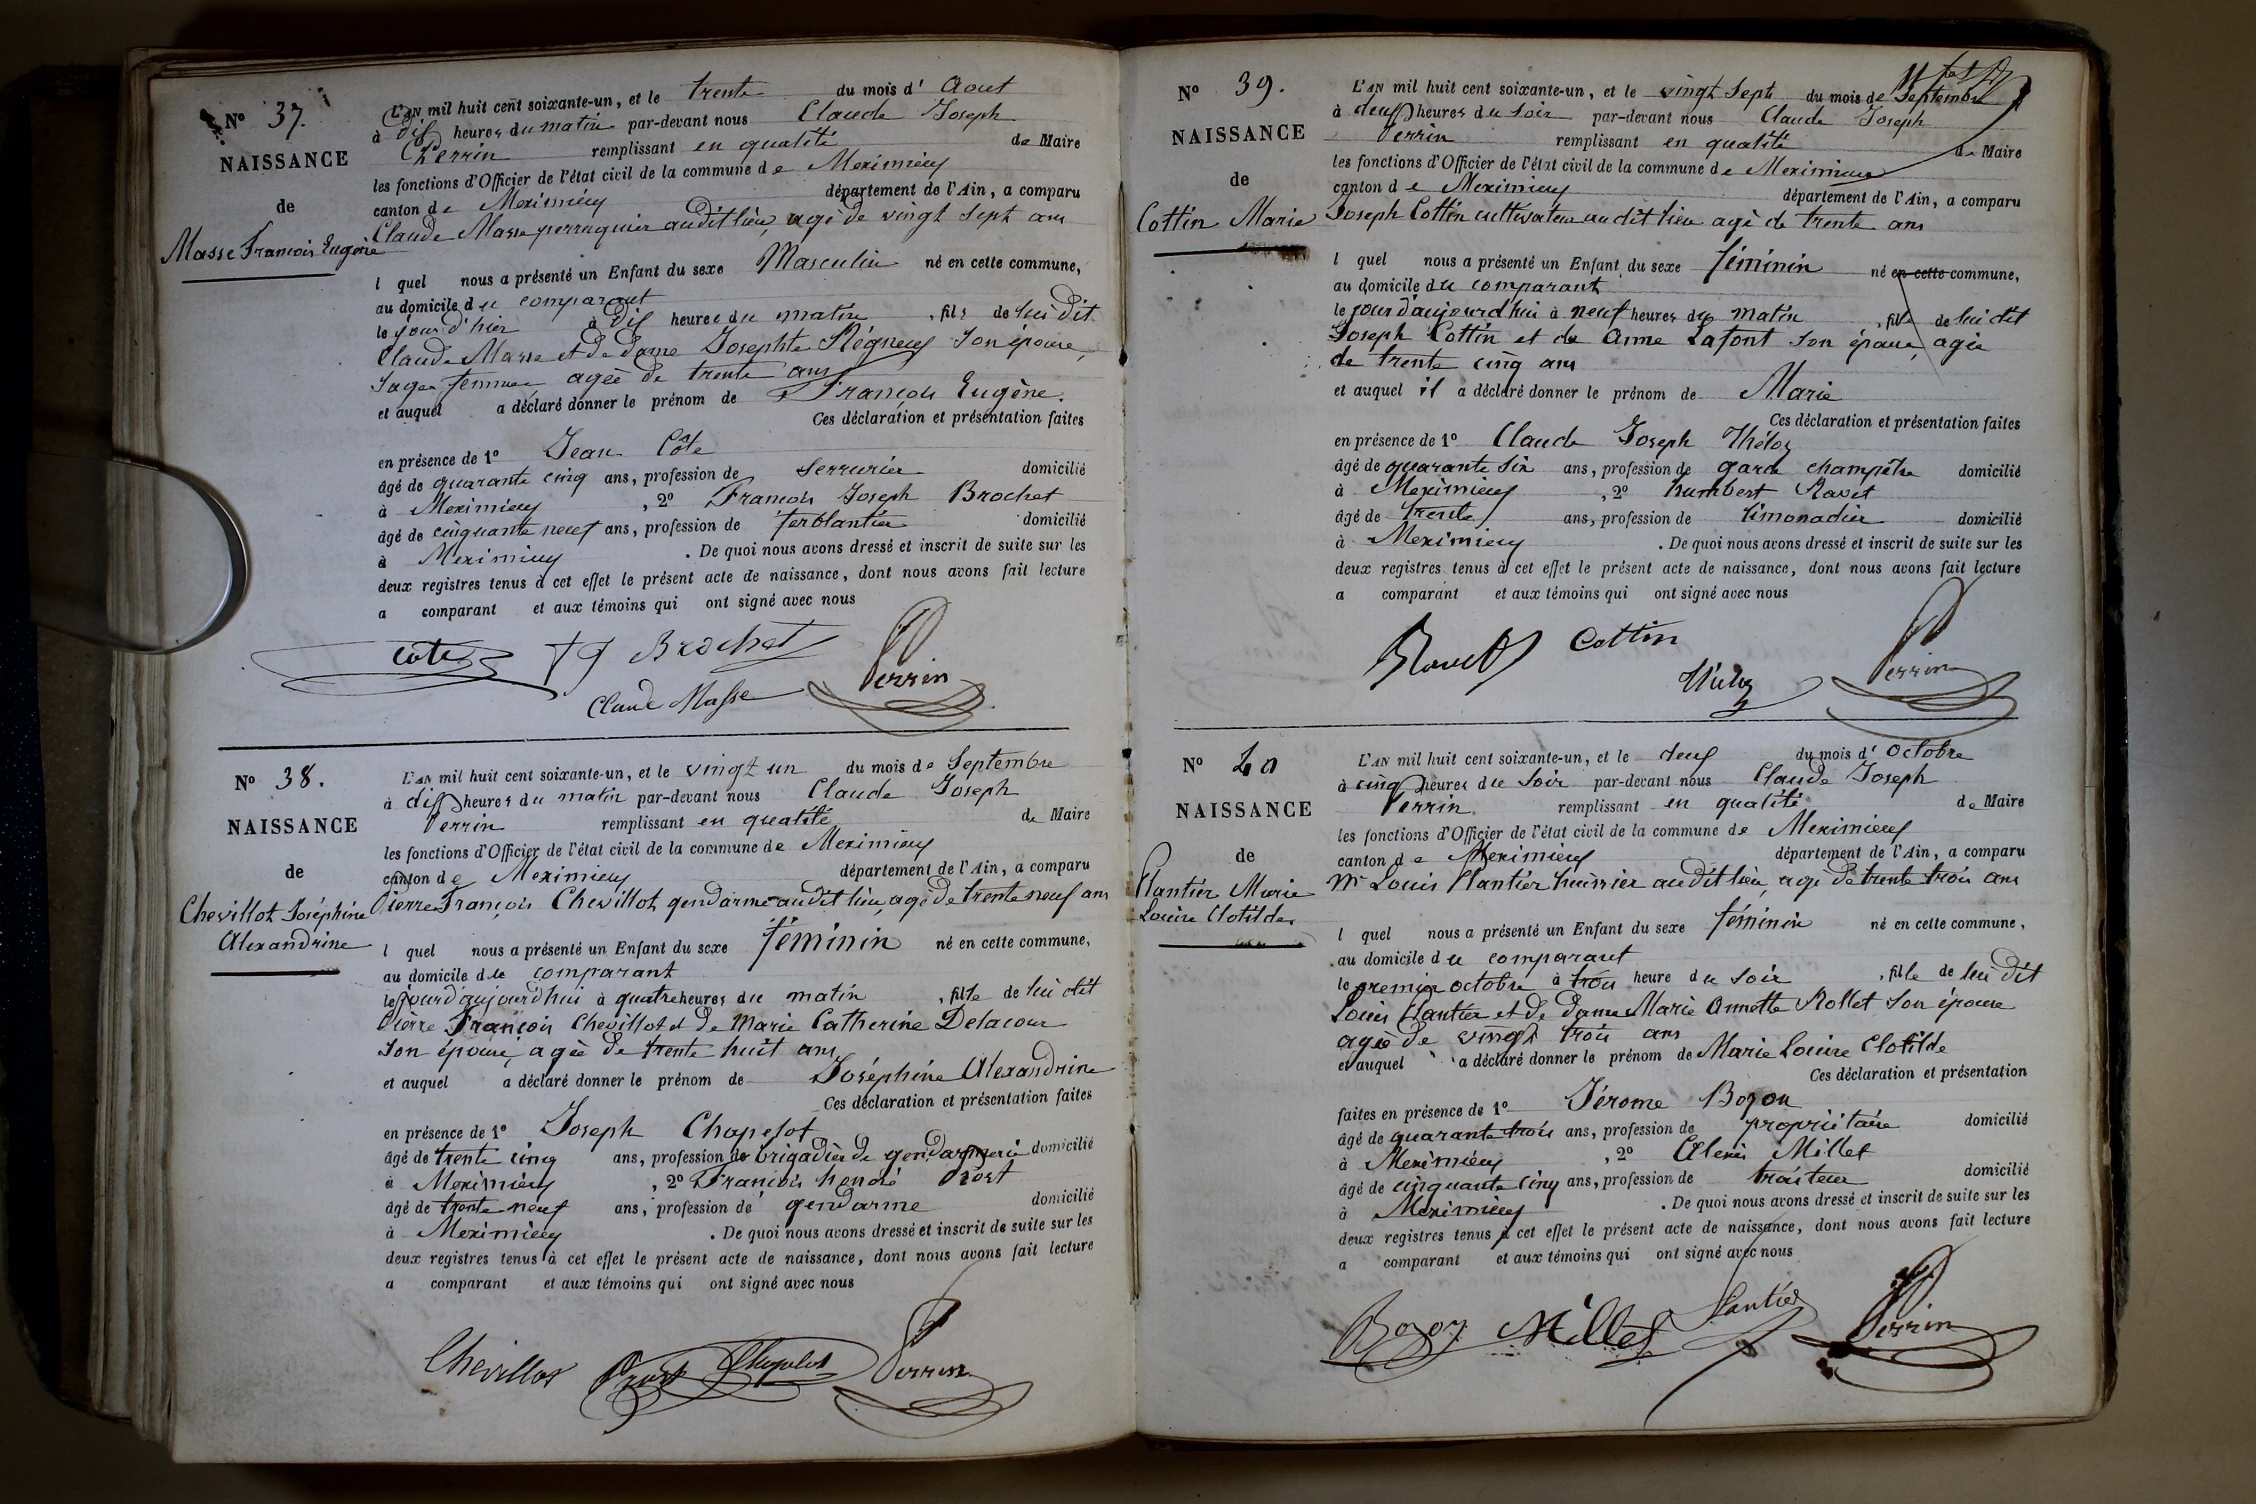 N° 37.
NAISSANCE
de
Masse François Eugène
L'AN mil huit cent soixante-un, et le trente du mois d' Aout
à dix heures du matin par-devant nous Claude Joseph
Perrin remplissant en qualité de Maire
les fonctions d'Officier de l'état civil de la commune de Meximieux
canton de Meximieux département de l'Ain, a comparu
Claude Masse perruquier audit lieu, agé de vingt sept ans
l quel nous a présenté un Enfant du sexe Masculin né en cette commune,
au domicile du comparant
le jour d'hier à dix heures du matin , fils de lui dit
Claude Masse et de dame Josephte Régneux son épouse,
sage femme agée de trente ans
et auquel a déclaré donner le prénom de François Eugène.
Ces déclaration et présentation faites
en présence de 1° Jean Côte
âgé de quarante cinq ans, profession de serrurier domicilié
à Meximieux , 2° François Joseph Brochet
âgé de cinquante neuf ans, profession de ferblantier domicilié
à Meximieux . De quoi nous avons dressé et inscrit de suite sur les
deux registres tenus à cet effet le présent acte de naissance, dont nous avons fait lecture
a comparant et aux témoins qui ont signé avec nous
Cote Brochet Perrin
Claude Masse
N° 38.
NAISSANCE
de
Chevillot Joséphine
Alexandrine
L'AN mil huit cent soixante-un, et le vingt un du mois de Septembre
à dix heures du matin par-devant nous Claude Joseph
Perrin remplissant en qualité de Maire
les fonctions d'Officier de l'état civil de la commune de Meximieux
canton de Meximieux département de l'Ain, a comparu
Pierre François Chevillot gendarme audit lieu, agé de trente neuf ans
l quel nous a présenté un Enfant du sexe féminin né en cette commune,
au domicile du comparant
le jour d'aujourd'hui à quatre heures du matin , fille de lui dit
Pierre François Chevillot et de Marie Catherine Delacour
son épouse, agée de trente huit ans
et auquel a déclaré donner le prénom de Joséphine Alexandrine
Ces déclaration et présentation faites
en présence de 1° Joseph Chapelot
âgé de trente cinq ans, profession de brigadier de gendarmerie domicilié
à Meximieux , 2° François honoré Prost
âgé de trente neuf ans, profession de gendarme domicilié
à Meximieux . De quoi nous avons dressé et inscrit de suite sur les
deux registres tenus à cet effet le présent acte de naissance, dont nous avons fait lecture
a comparant et aux témoins qui ont signé avec nous
Chevillot Prost Chapelot Perrin
N° 39.
NAISSANCE
de
Cottin Marie
L'AN mil huit cent soixante-un, et le vingt sept du mois de Septembre
à deux heures du soir par-devant nous Claude Joseph
Perrin remplissant en qualité de Maire
les fonctions d'Officier de l'état civil de la commune de Meximieux
canton de Meximieux département de l'Ain, a comparu
Joseph Cottin cultivateur audit lieu agé de trente ans
l quel nous a présenté un Enfant du sexe féminin né en cette commune,
au domicile du comparant
le jour d'aujourd'hui à neuf heures du matin , fille de lui dit
Joseph Cottin et de Anne Lafont son épouse, agée
de trente cinq ans
et auquel il a déclaré donner le prénom de Marie
Ces déclaration et présentation faites
en présence de 1° Claude Joseph Théloz
âgé de quarante six ans, profession de garde champêtre domicilié
à Meximieux , 2° humbert Ravet
âgé de trente ans, profession de limonadier domicilié
à Meximieux . De quoi nous avons dressé et inscrit de suite sur les
deux registres tenus à cet effet le présent acte de naissance, dont nous avons fait lecture
a comparant et aux témoins qui ont signé avec nous
Ravet Cottin
Perrin
N° 40
NAISSANCE
de
Plantier Marie
Louise Clotilde
L'AN mil huit cent soixante-un, et le deux du mois d' Octobre
à cinq heures du soir par-devant nous Claude Joseph
Perrin remplissant en qualité de Maire
les fonctions d'Officier de l'état civil de la commune de Meximieux
canton de Meximieux département de l'Ain, a comparu
Mr Louis Plantier huissier audit lieu, agé de trente trois ans
l quel nous a présenté un Enfant du sexe féminin né en cette commune,
au domicile du comparant
le premier octobre à trois heure du soir , fille de lui dit
Louis Plantier et de dame Marie Annette Rollet son épouse
agée de vingt trois ans
et auquel a déclaré donner le prénom de Marie Louise Clotilde
Ces déclaration et présentation
faites en présence de 1° Jérome Bozon
âgé de quarante trois ans, profession de propriétaire domicilié
à Meximieux , 2° Alexis Millet
âgé de cinquante cinq ans, profession de traiteur domicilié
à Meximieux . De quoi nous avons dressé et inscrit de suite sur les
deux registres tenus à cet effet le présent acte de naissance, dont nous avons fait lecture
a comparant et aux témoins qui ont signé avec nous
Bozon Millet Plantier Perrin